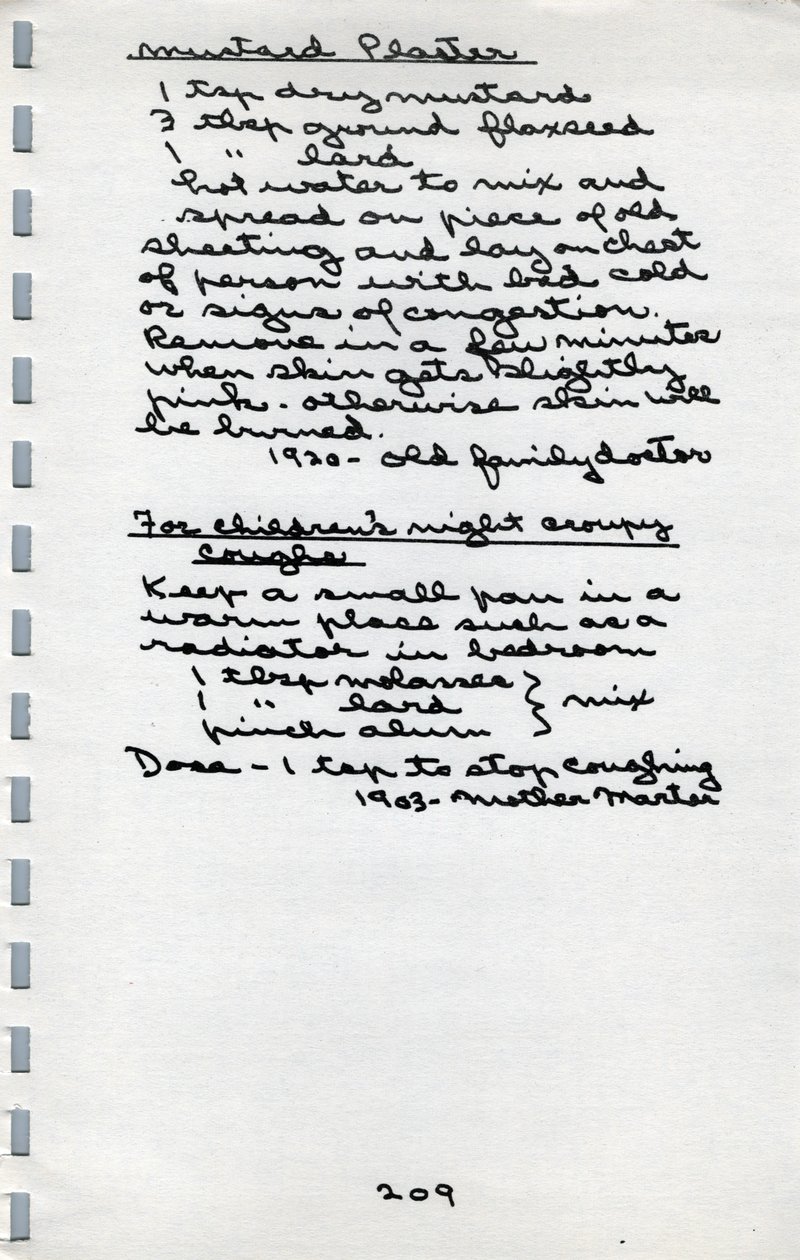 Mustard Plaster
1 tsp dry mustard
3 tbsp ground flaxseed
1 " lard
hot water to mix and
spread on piece of old
sheeting and lay on chest
of person with bad cold
or signs of congestion.
Remove in a few minutes
when skin gets slightly
pink - otherwise skin will
be burned.
1920 - old family doctor
For children's night croupy
coughs
Keep a small pan in a
warm place such as a
radiator in bedroom
1 tbsp molasses
1 " lard } mix
pinch alum
Dose - 1 tsp to stop coughing
1903 - Mother Marter
209